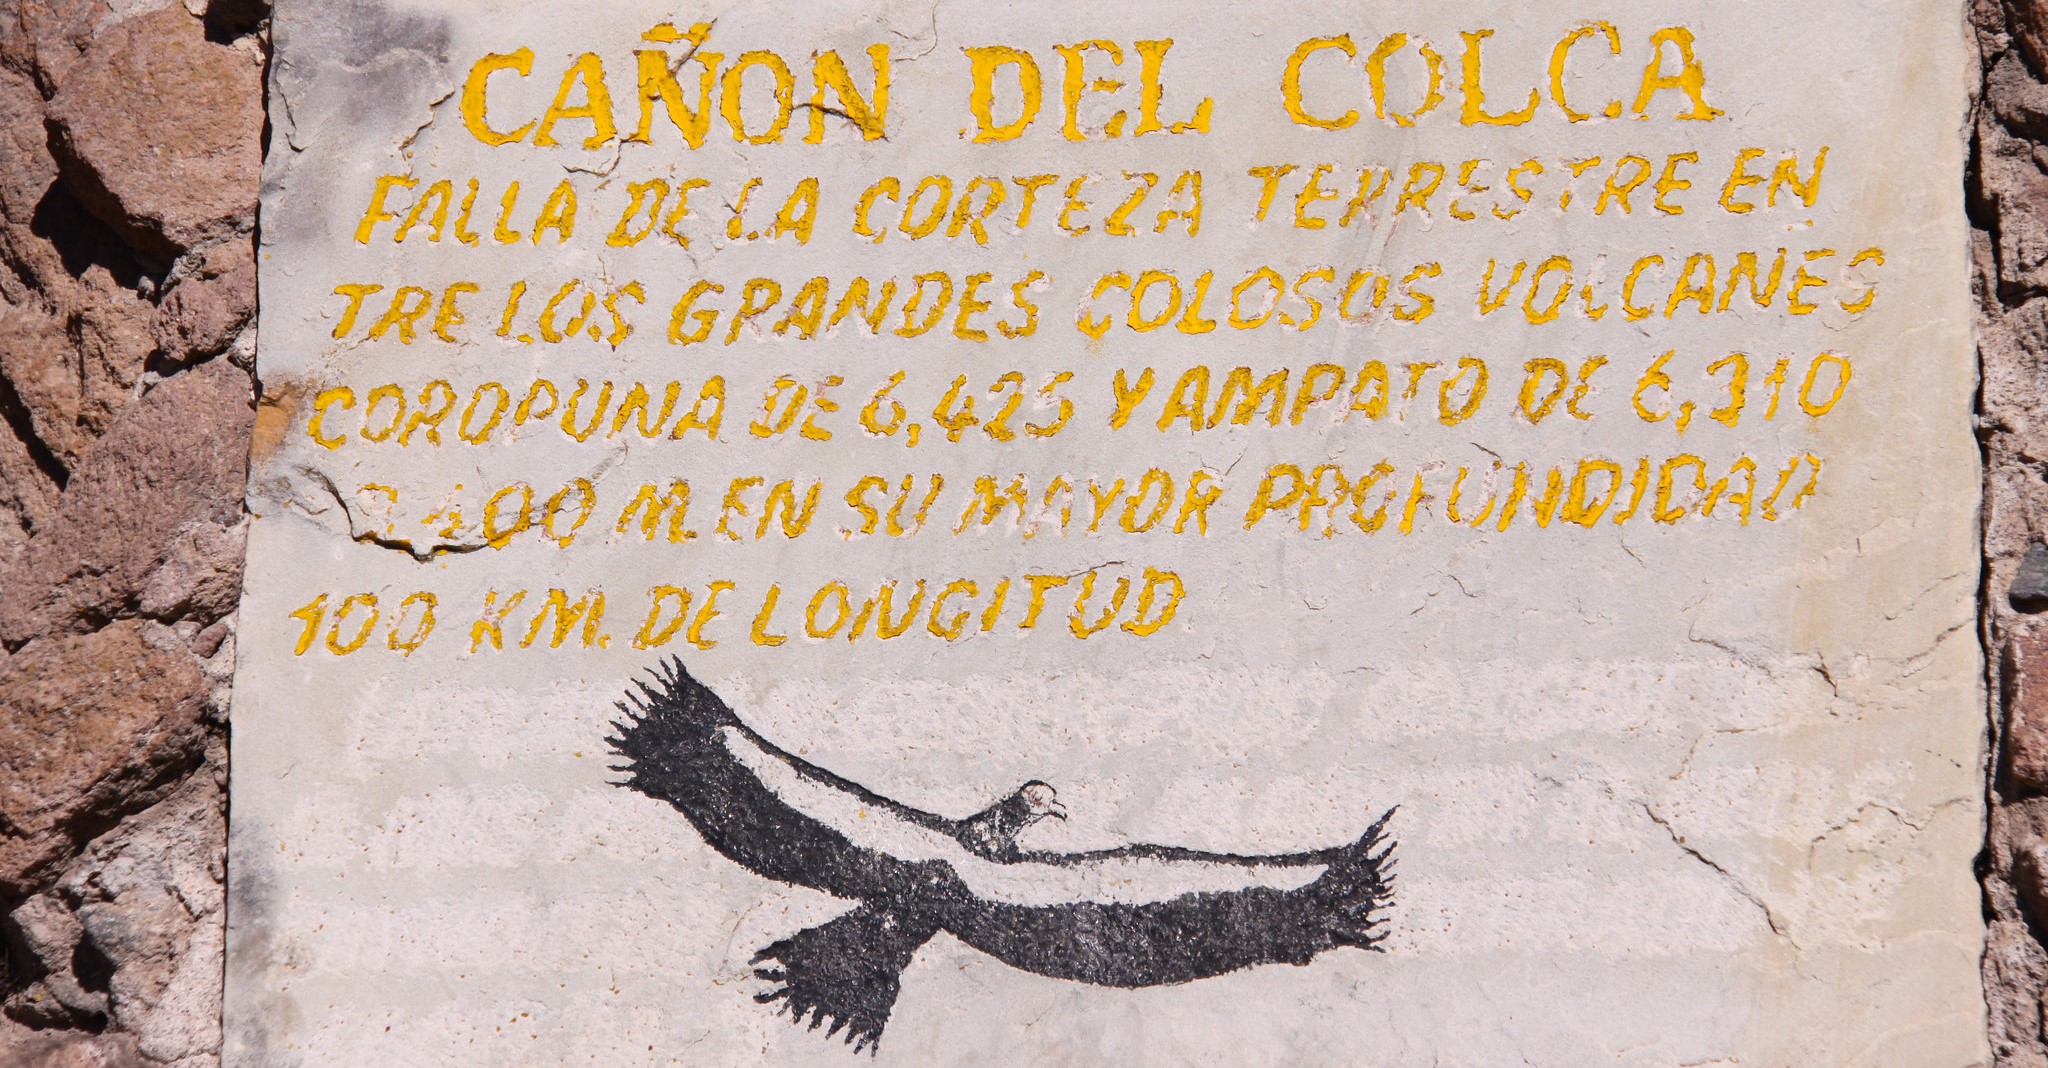 CAÑON DEL COLCA
FALLA DE LA CORTEZA TERRESTRE EN
TRE LOS GRANDES COLOSOS VOLCANES
COROPUNA DE 6,425 Y AMPATO DE 6,310
3,400 M. EN SU MAYOR PROFUNDIDAD
100 KM. DE LONGITUD